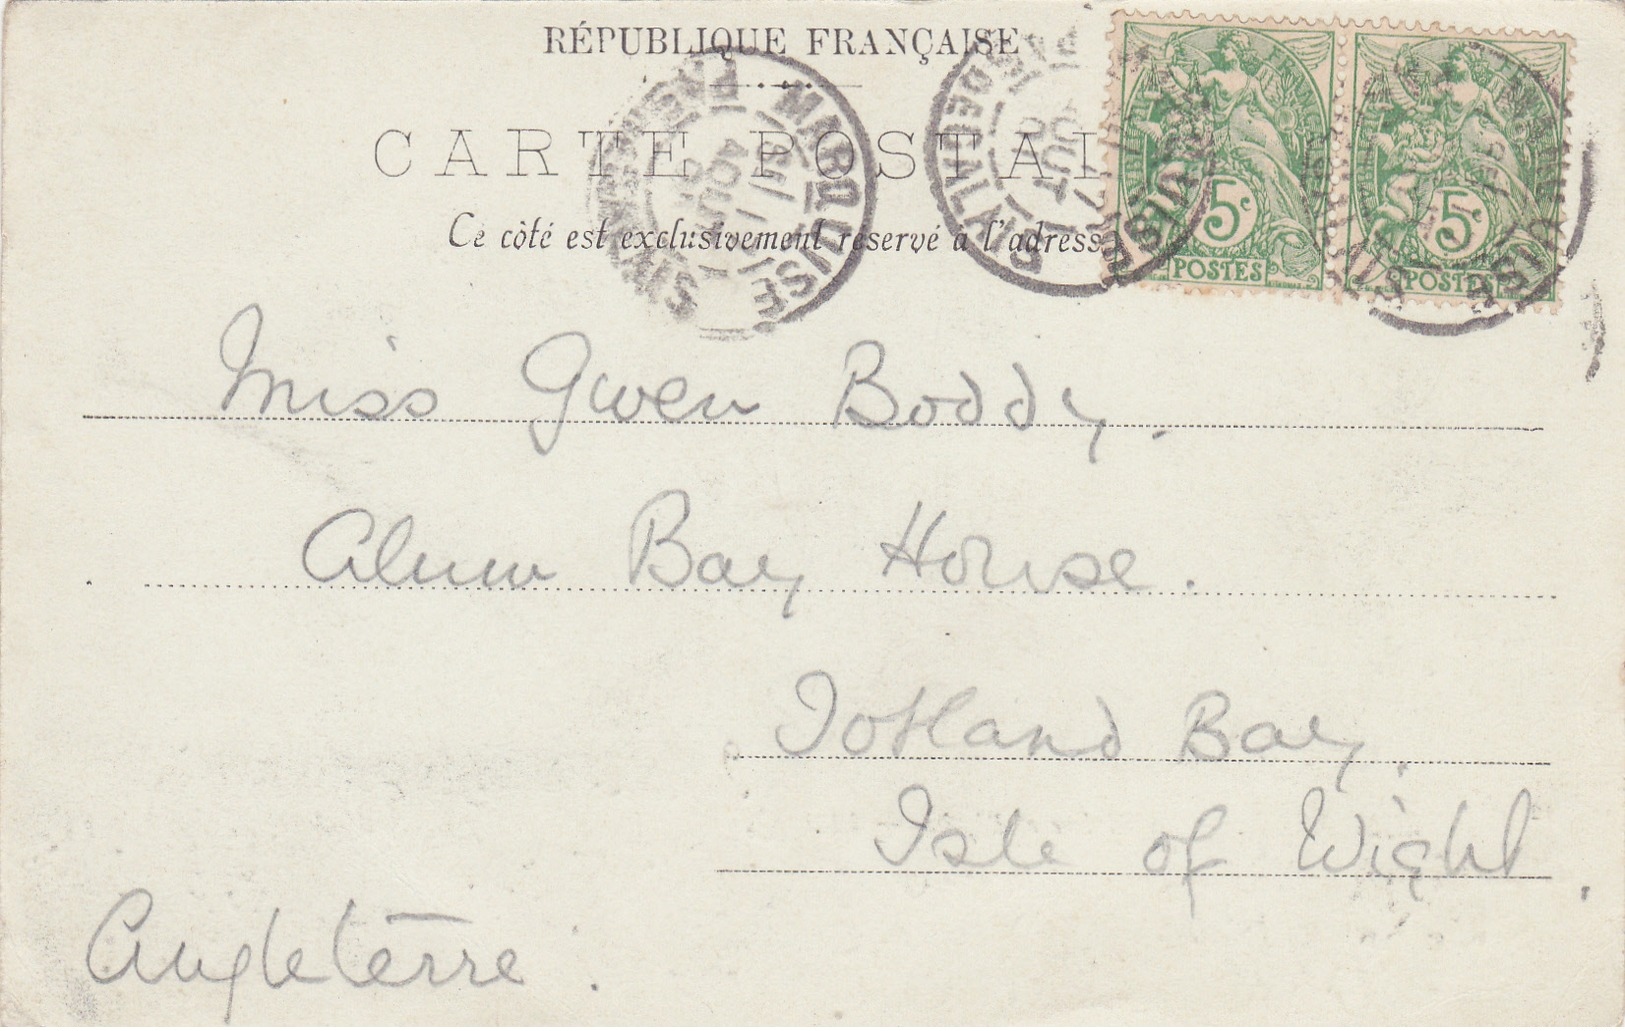 RÉPUBLIQUE FRANÇAISE
CARTE POSTAL
Ce côté est exclusivement réservé à l'adresse
MARQUISE
PAS DE CALAIS
AOUT
5c
POSTES
5c
POSTES
Miss Gwen Boddy.
Alum Bay House.
Totland Bay.
Isle of Wight.
Angleterre.